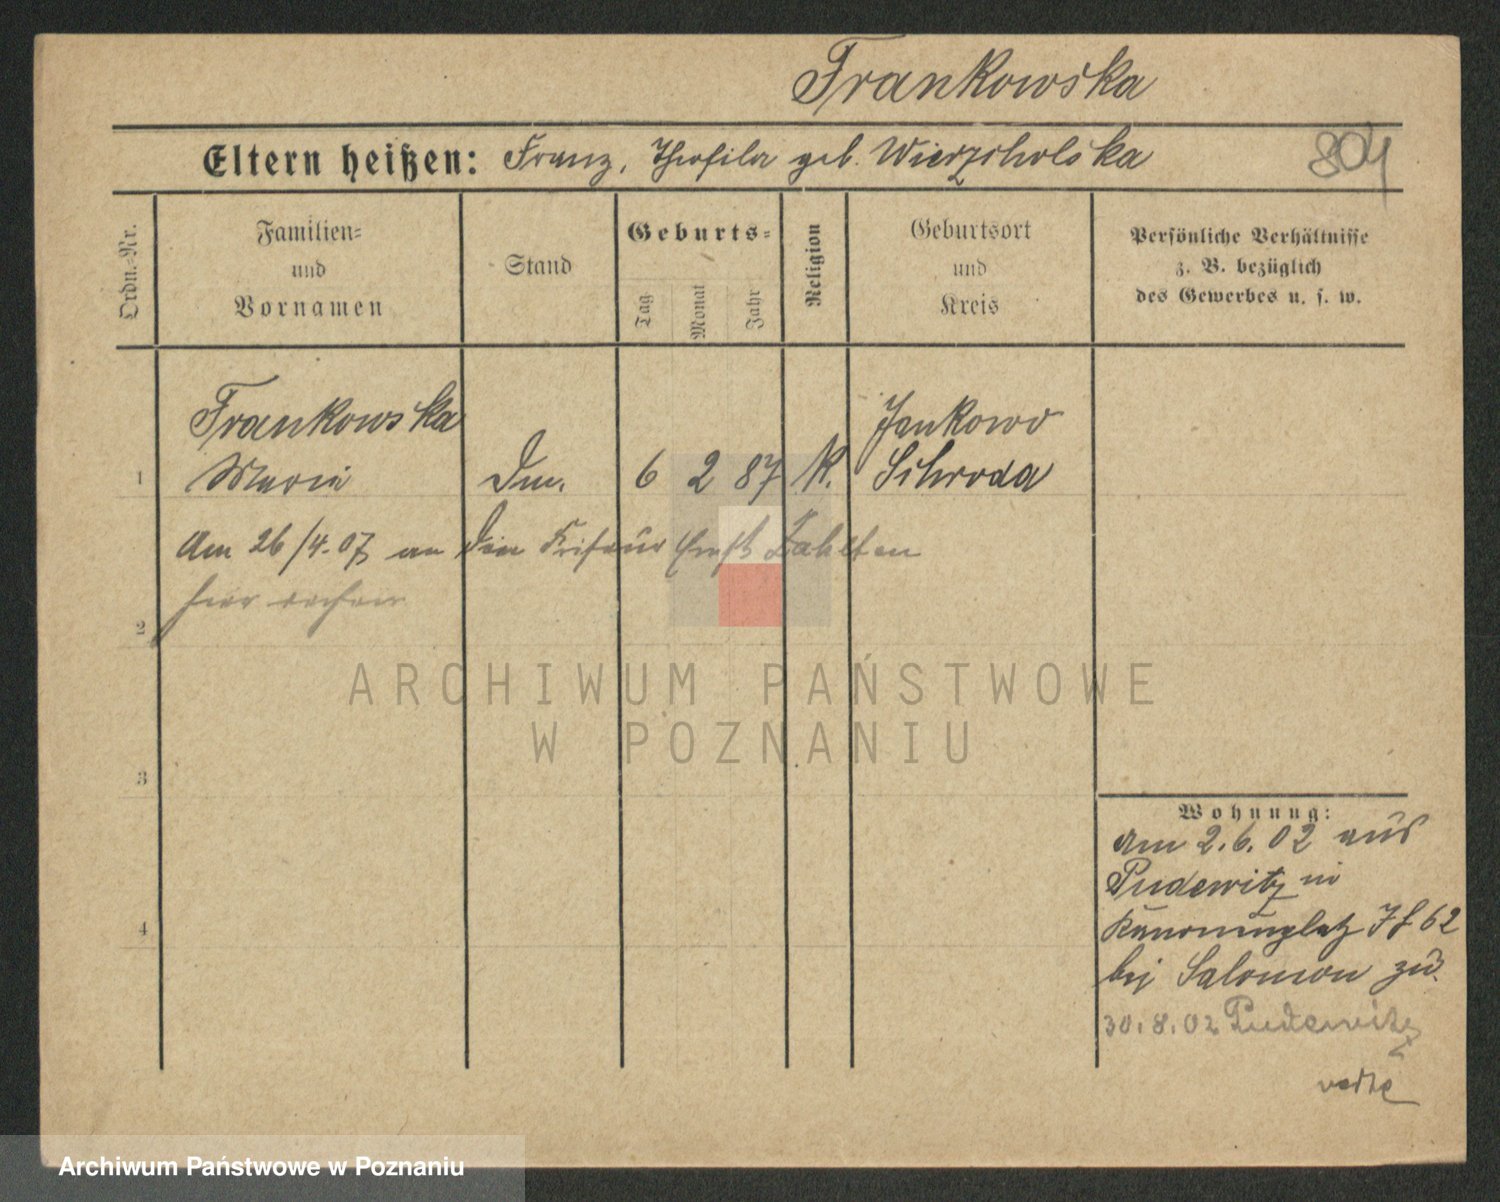 Frankowska
Eltern heißen: Franz, Theofila geb. Wierzcholska
804
Ordn.-Nr.
Familien-
und
Vornamen
Stand
Geburts-
Tag
Monat
Jahr
Religion
Geburtsort
und
Kreis
Persönliche Verhältnisse
z. B. bezüglich
des Gewerbes u. s. w.
1
Frankowska
Maria
Dm.
6
2
87
K.
Jankowo
Schroda
Am 26/4.07 an den Friseur
hier
2
ARCHIWUM PAŃSTWOWE
W POZNANIU
3
4
Wohnung:
Am 2.6.02 aus
Pudewitz in
Kanonenplatz 62
bei Salomon zu.
30.8.02 Pudewitz
Archiwum Państwowe w Poznaniu